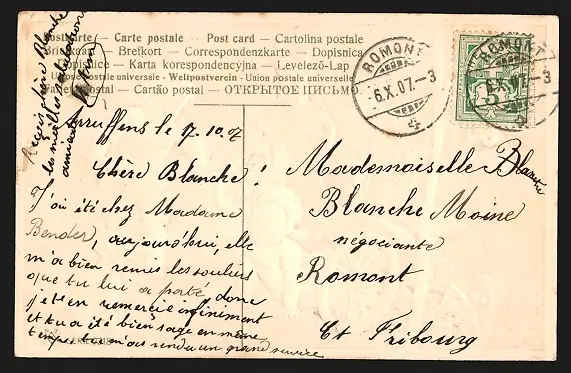 Postkarte – Carte postale – Post card – Cartolina postale
Briefkaart – Brefkort – Correspondenzkarte – Dopisnica
Dopisnice – Karta korespondencyjna – Levelező-Lap
postale universale – Weltpostverein – Union postale universelle
Cartão postal – ОТКРЫТОЕ ПИСЬМО.
Reçois chère Blanche
les meilleures salutations
amicales
ROMONT
6.X.07.-3
ROMONT
6.X.07.-3
5
le 7.10.07
Chère Blanche !
J'ai été chez Madame
Bender, aujourd'hui, elle
m'a bien remis les souliers
que tu lui a porté, donc
je t'en remercie infiniment
et tu a été bien sage en même
temps tu m'as rendu un grand service
Mademoiselle Blanche
Blanche Moine
négociante
Romont
Ct Fribourg